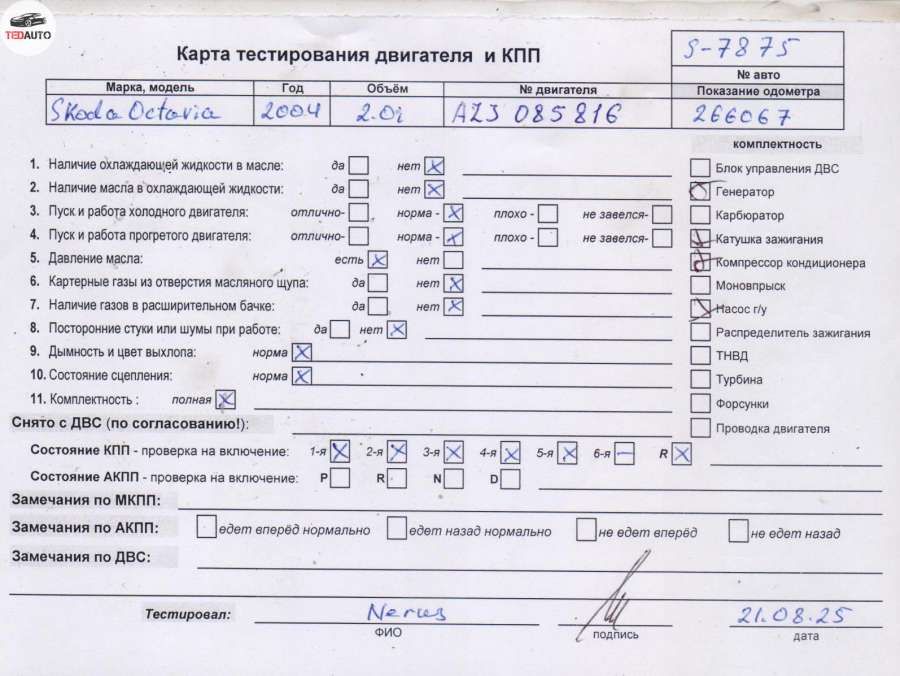 TEDAUTO
Карта тестирования двигателя и КПП
S-7875
№ авто
Марка, модель Год Объём № двигателя Показание одометра
Skoda Octavia 2004 2.0i AZJ 085816 266067
комплектность
1. Наличие охлаждающей жидкости в масле: да нет
2. Наличие масла в охлаждающей жидкости: да нет
3. Пуск и работа холодного двигателя: отлично- норма - плохо - не завелся-
4. Пуск и работа прогретого двигателя: отлично- норма - плохо - не завелся-
5. Давление масла: есть нет
6. Картерные газы из отверстия масляного щупа: да нет
7. Наличие газов в расширительном бачке: да нет
8. Посторонние стуки или шумы при работе: да нет
9. Дымность и цвет выхлопа: норма
10. Состояние сцепления: норма
11. Комплектность : полная
Блок управления ДВС
Генератор
Карбюратор
Катушка зажигания
Компрессор кондиционера
Моновпрыск
Насос г/у
Распределитель зажигания
ТНВД
Турбина
Форсунки
Проводка двигателя
Снято с ДВС (по согласованию!):
Состояние КПП - проверка на включение: 1-я 2-я 3-я 4-я 5-я 6-я R
Состояние АКПП - проверка на включение: P R N D
Замечания по МКПП:
Замечания по АКПП: едет вперёд нормально едет назад нормально не едет вперёд не едет назад
Замечания по ДВС:
Тестировал: 21.08.25
ФИО подпись дата